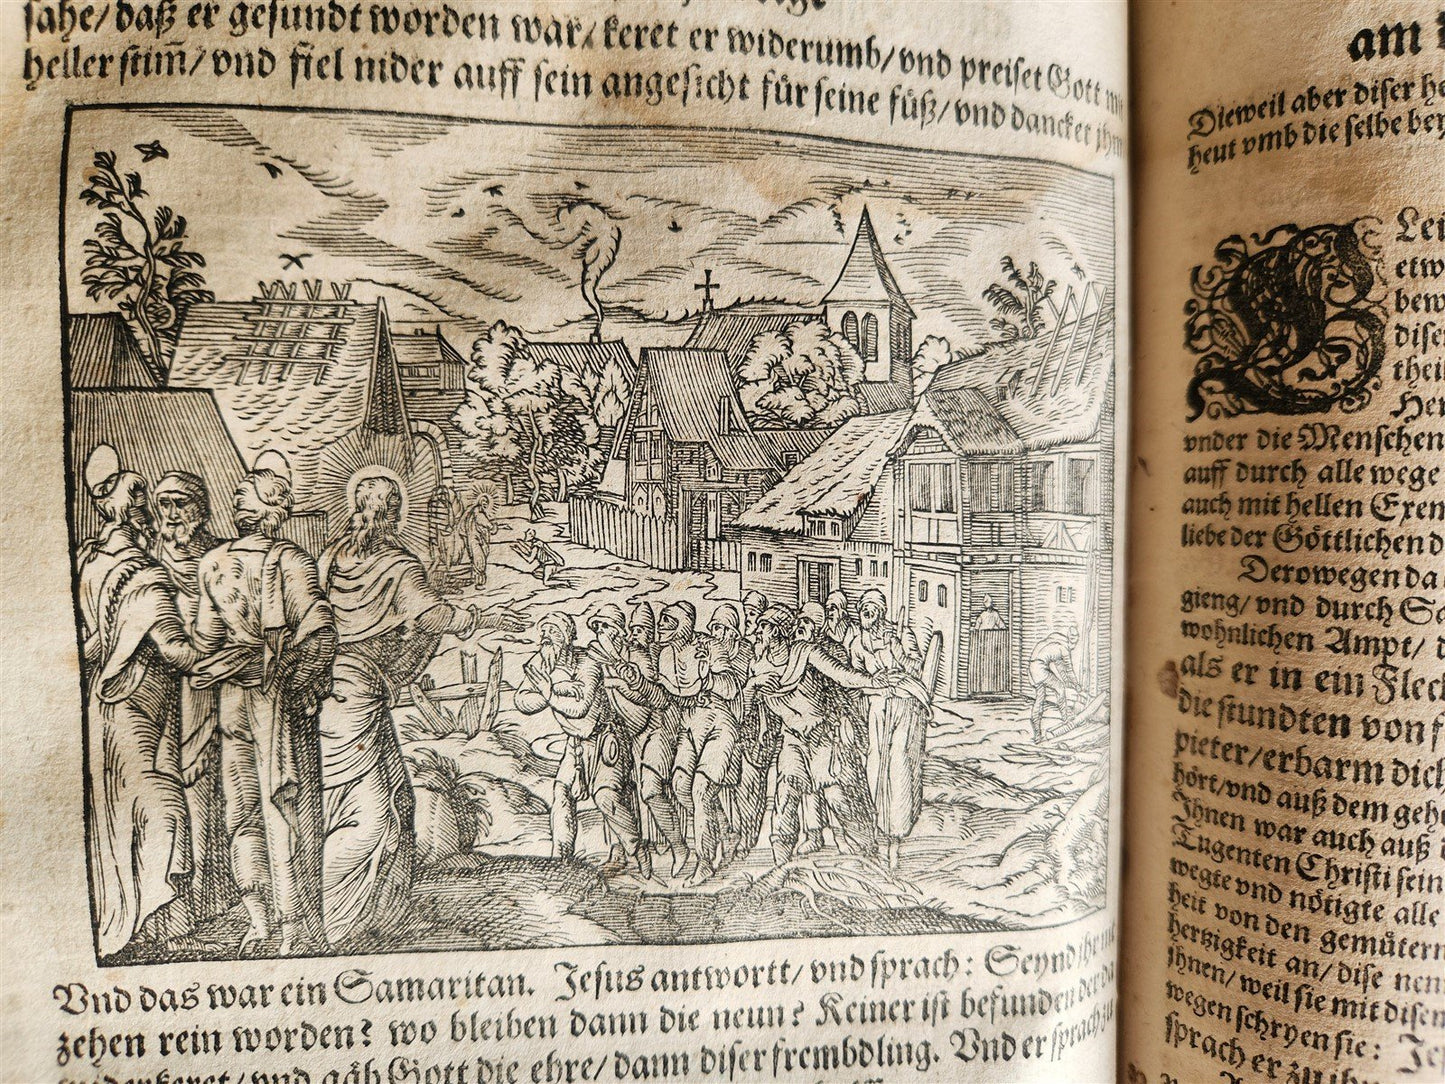 sahe/ daß er gesundt worden war/ keret er widerumb/ vnd preiset Gott mit
heller stim̃/ vnd fiel nider auff sein angesicht für seine füß/ vnd dancket jhm
Vnd das war ein Samaritan. Jesus antwortt/ vnd sprach: Seynd jhr
zehen rein worden? wo bleiben dann die neun? Keiner ist befunden der da
vnd gäb Gott die ehre/ dann diser frembdling. Vnd er sprach zu
am
Dieweil aber diser
heut vmb die selbe
etw
bew
vnder die Menschen
auff durch alle wege
auch mit hellen
liebe der Göttlichen
Derowegen da
gieng/ vnd durch
wohnlichen Ampt/
als er in ein
die stundten von
pieter/ erbarm dich
hört/ vnd auß dem
Ihnen war auch auß
Tugenten Christi sein
wegte vnd nötigte alle
heit von den gemütern
hertzigkeit an/ dise
jhnen/ weil sie mit disen
wegen schryen sie:
sprach er zu